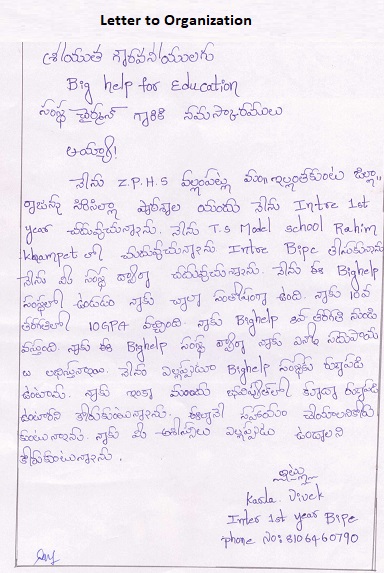 Letter to Organization
శ్రీయుత గౌరవనీయులగు
Big help for Education
సంస్థ చైర్మన్ గారికి నమస్కారములు
అయ్యా!
నేను Z.P.H.S వల్లంపట్ల మం॥ ఇల్లంతకుంట జిల్లా
రాజన్న సిరిసిల్లా పాఠశాల యందు నేను Intre 1st
year చదువుచున్నాను. నేను T.S Model school Rahim
khampet లో చదువుచున్నాను Intre Bipc తీసుకున్నాను
నేను మీ సంస్థ ద్వారా చదువుచున్నాను. నేను ఈ Bighelp
సంస్థలో ఉండడం నాకు చాలా సంతోషంగా ఉంది. నాకు 10వ
తరగతిలో 10GPA వచ్చింది. నాకు Bighelp తరగతి నుండి
వస్తుంది. నాకు ఈ Bighelp సంస్థ ద్వారా నాకు ఎన్నో సదుపాయా
లు లభిస్తున్నాయి. నేను ఎల్లప్పుడూ Bighelp సంస్థకు రుణపడి
ఉంటాను. నాకు ఇంకా ముందు భవిష్యత్‌లో కూడా రుణపడి
ఉంటానని కోరుకుంటున్నాను. ఈలాగే సహాయం చేయాలనికోరు
కుంటున్నాను. నాకు మీ ఆశీస్సులు ఎల్లప్పుడు ఉండాలని
కోరుకుంటున్నాను.
ఇట్లు
Kasla. Vivek
Inter 1st year Bipc
phone No: 8106460790